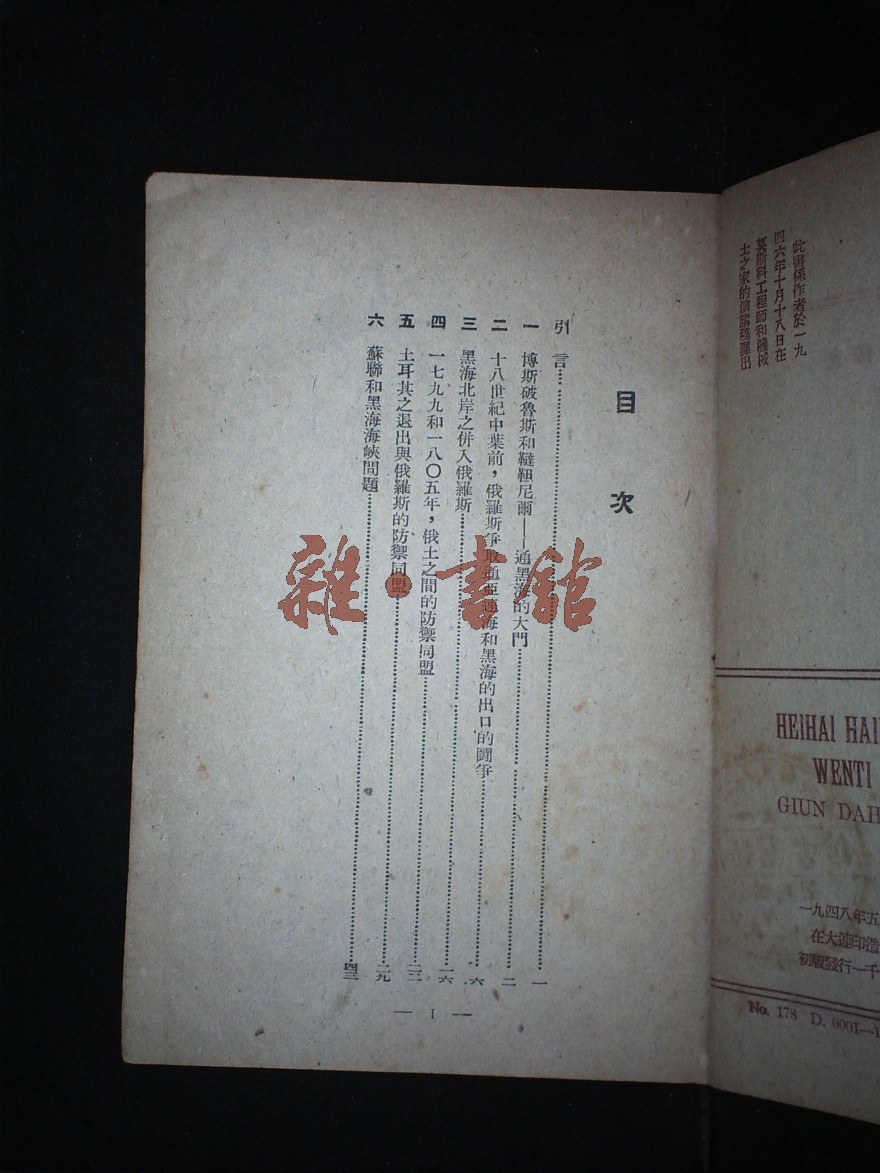 此書係作者於一九
四六年十月十八日在
莫斯科工程師和機械
士之家的演講稿譯出
HEIHAI HAI
WENTI
GIUN DAH
一九四八年五
在大連印造
初版發行一千
No. 178 D. 0001—1
目次
引言……一
一 博斯破魯斯和韃靼尼爾——通黑海的大門……二
二 十八世紀中葉前，俄羅斯爭取通亞速海和黑海的出口的鬪爭……六
三 黑海北岸之併入俄羅斯……一六
四 一七九九和一八〇五年，俄土之間的防禦同盟……二三
五 土耳其之退出與俄羅斯的防禦同盟……二九
六 蘇聯和黑海海峽問題……四三
— I —
雜·書館